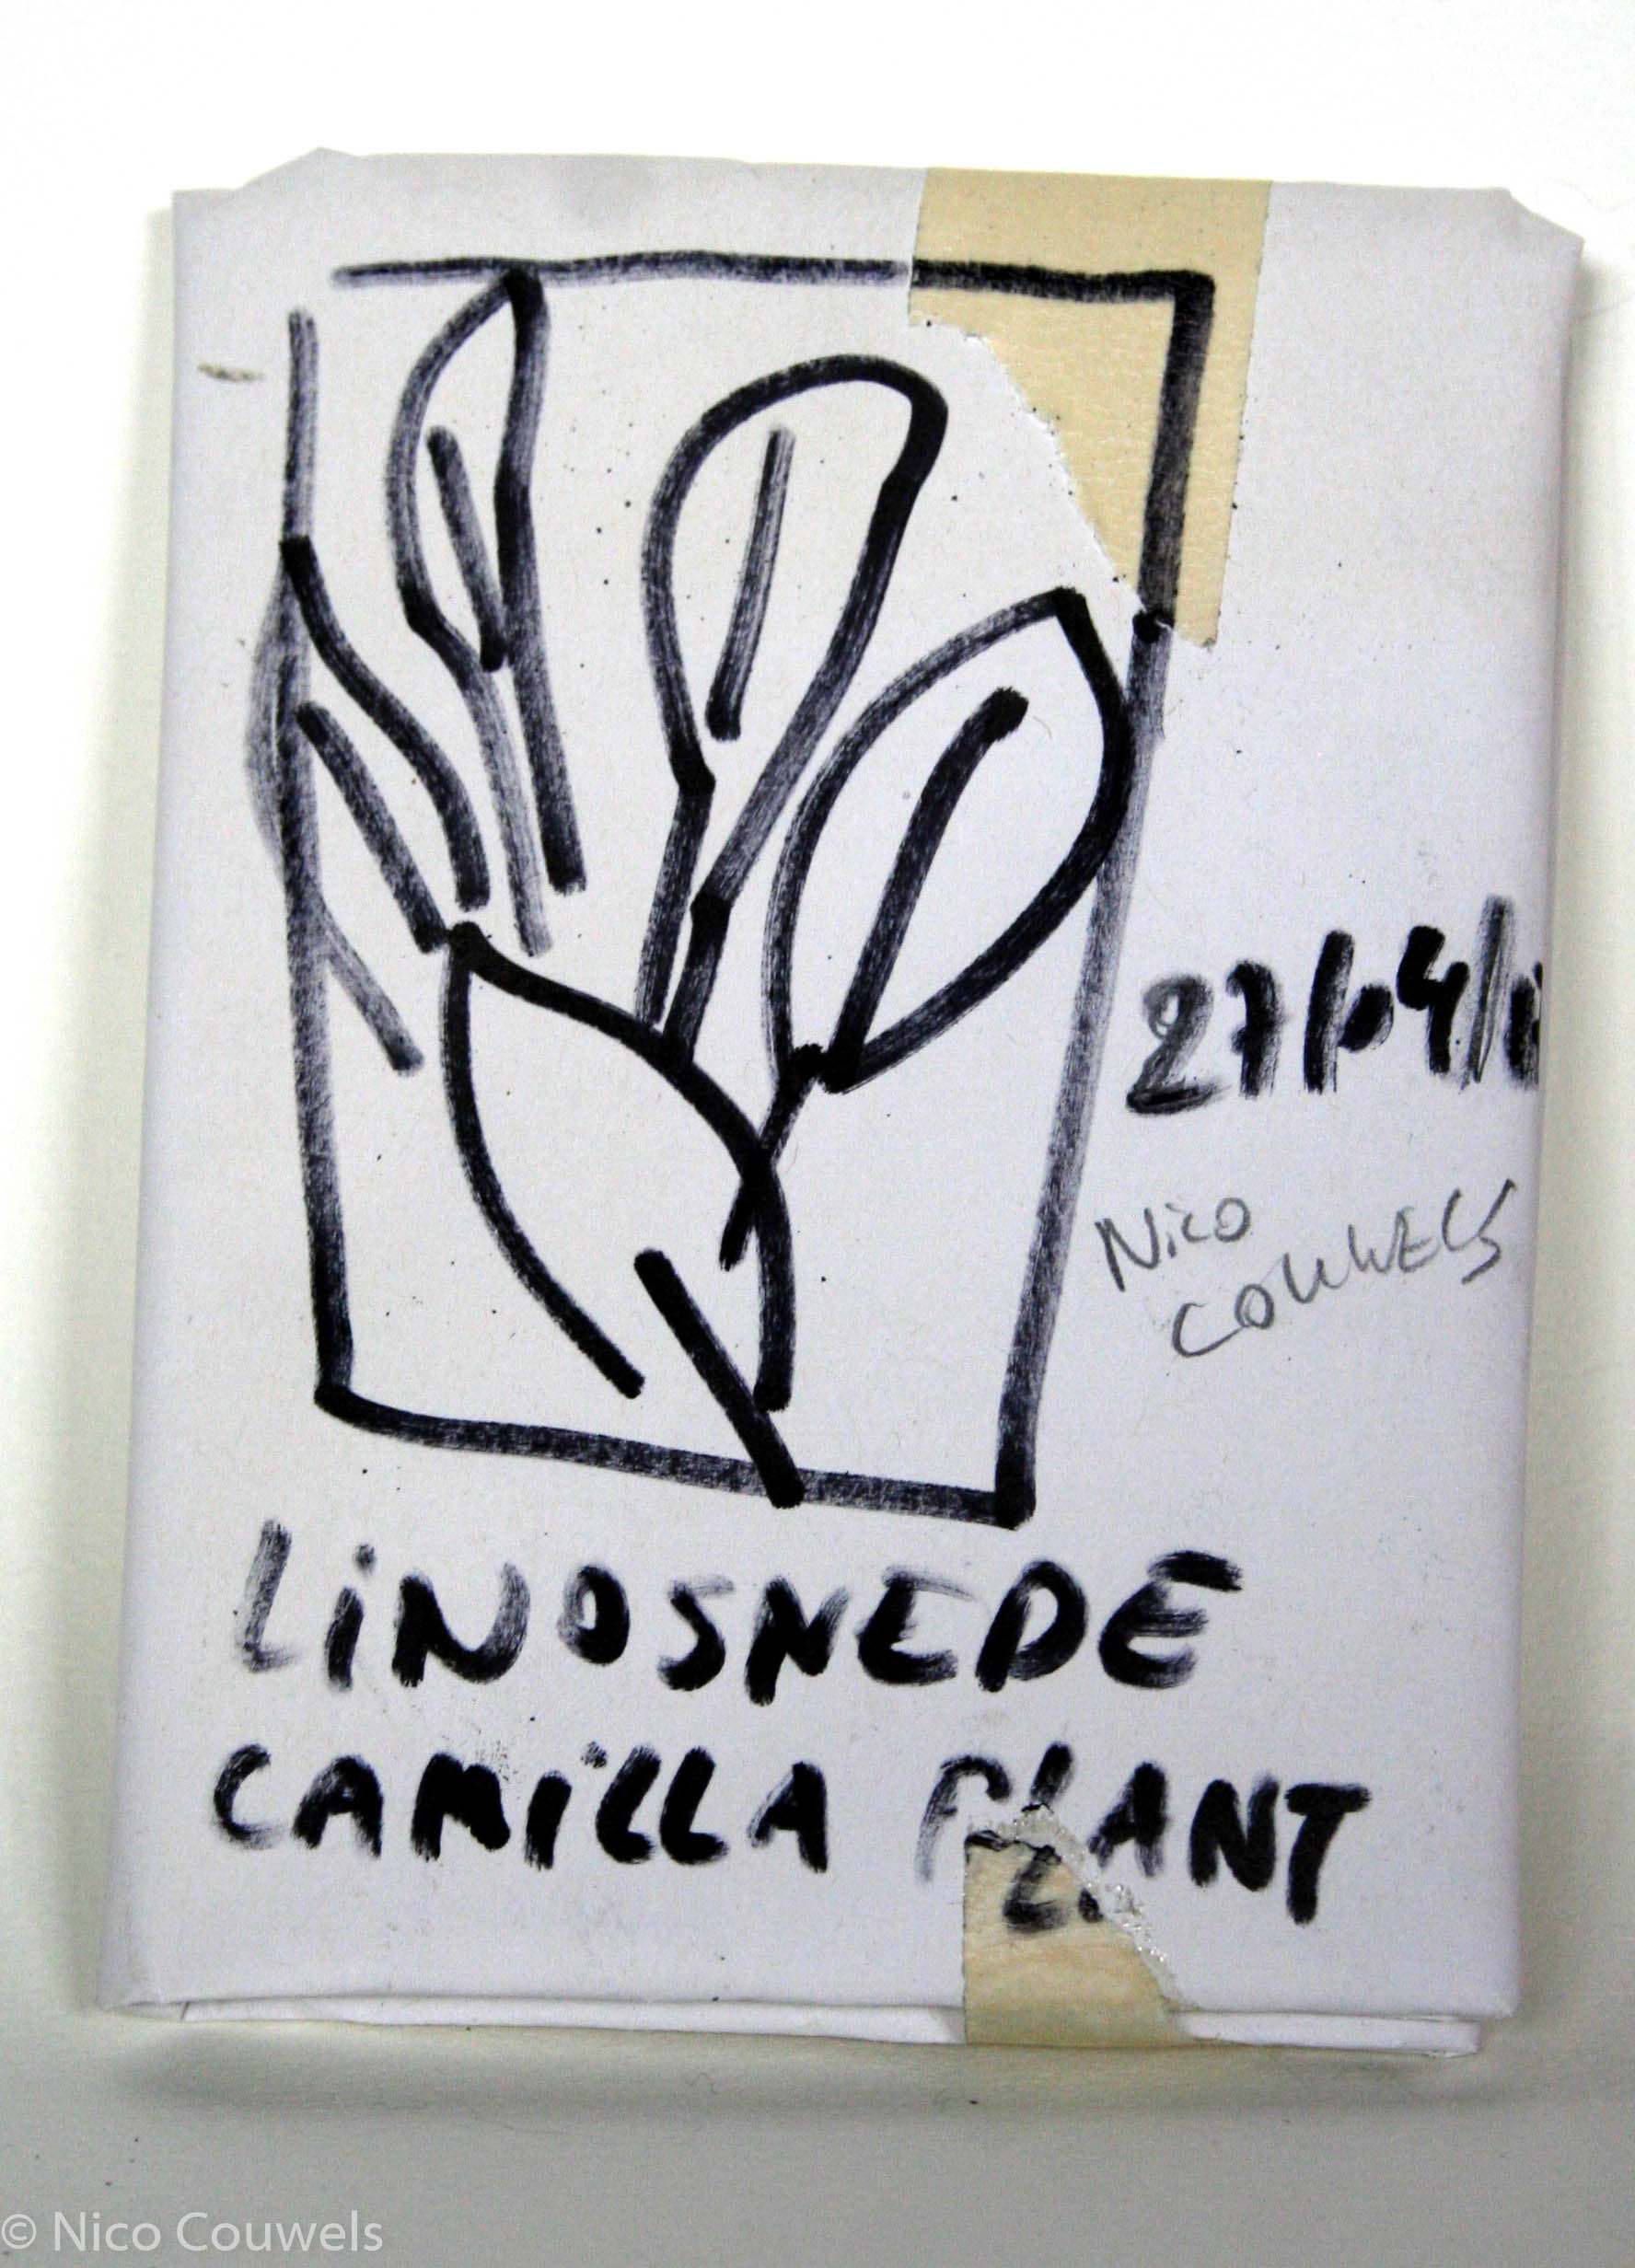 27/04/
Nico
COUWELS
LiNOSNEDE
CAMiLLA PLANT
© Nico Couwels